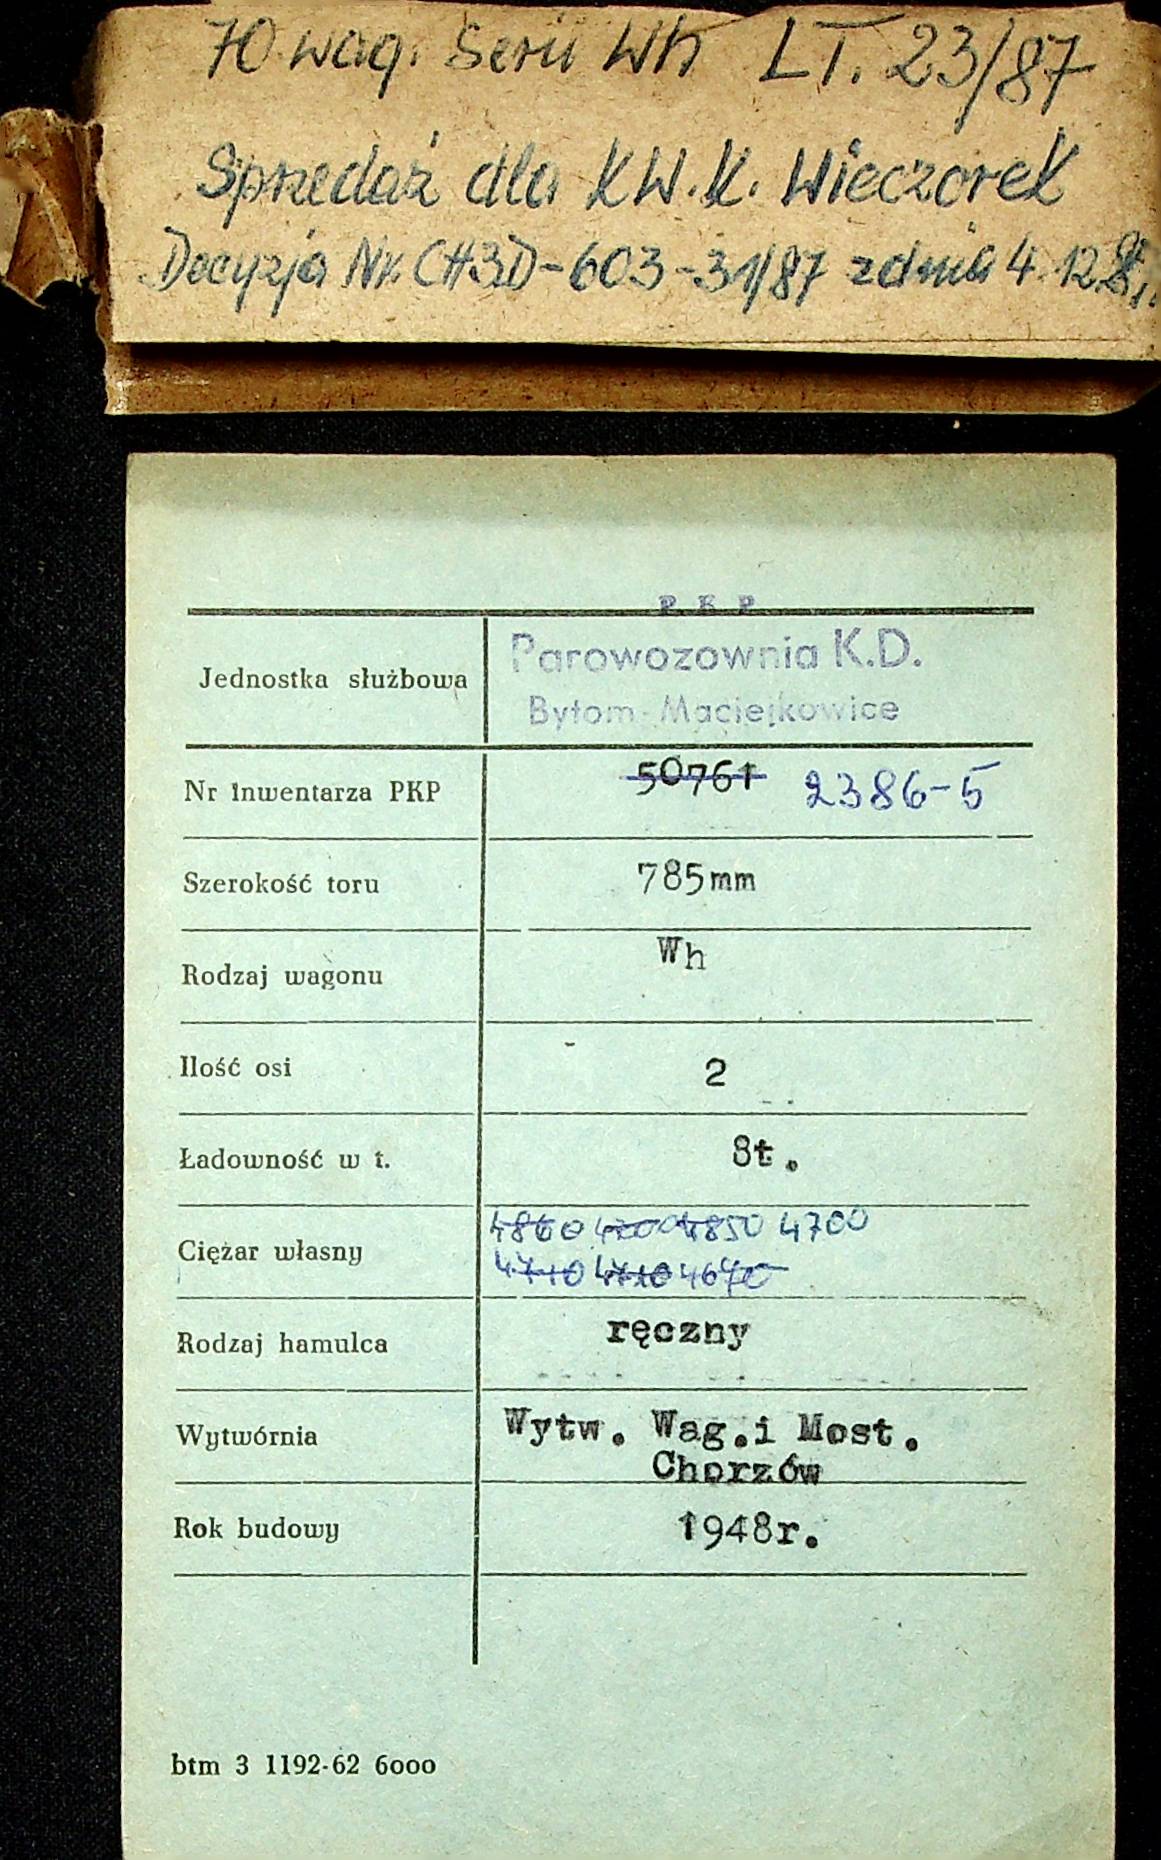 70 wag. Serii Wh LT. 23/87
Sprzedaż dla KW.K. Wieczorek
Decyzja Nr. CH3D-603-31/87 z dnia 4.12.
P K P
Jednostka służbowa Parowozownia K.D.
Bytom-Maciejkowice
Nr Inwentarza PKP 50761 2386-5
Szerokość toru 785mm
Rodzaj wagonu Wh
Ilość osi 2
Ładowność w t. 8t.
4860 4850 4700
Ciężar własny
4710 4710 4670
Rodzaj hamulca ręczny
Wytwórnia Wytw. Wag.i Most.
Chorzów
Rok budowy 1948r.
btm 3 1192-62 6000